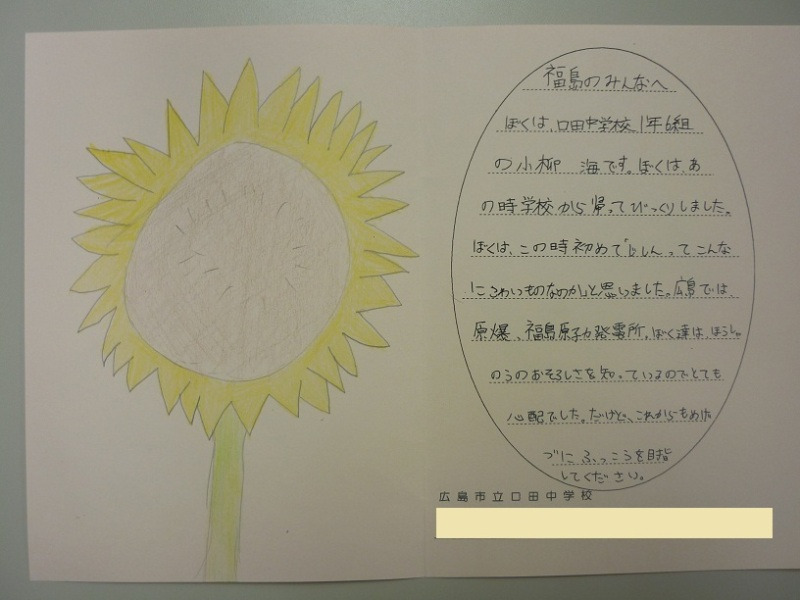 福島のみんなへ
ぼくは、口田中学校1年6組
の小柳 海です。ぼくは、あ
の時学校から帰ってびっくりしました。
ぼくは、この時初めて「じしんってこんな
にこわいものなのか」と思いました。広島では、
原爆、福島原子力発電所。ぼく達は、ほうしゃ
のうのおそろしさを知っているのでとても
心配でした。だけど、これからもめげ
づにふっこうを目指
してください。
広島市立口田中学校